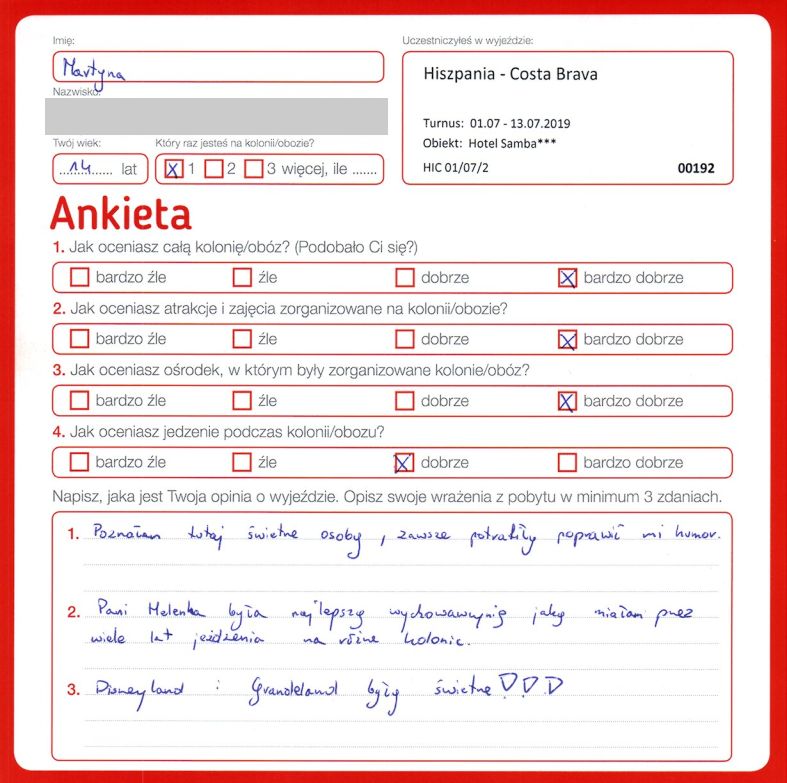 Imię:
Martyna
Nazwisko:
Twój wiek:
14 lat
Który raz jesteś na kolonii/obozie?
X 1 2 3 więcej, ile .......
Uczestniczyłeś w wyjeździe:
Hiszpania - Costa Brava
Turnus: 01.07 - 13.07.2019
Obiekt: Hotel Samba***
HIC 01/07/2 00192
Ankieta
1. Jak oceniasz całą kolonię/obóz? (Podobało Ci się?)
bardzo źle źle dobrze X bardzo dobrze
2. Jak oceniasz atrakcje i zajęcia zorganizowane na kolonii/obozie?
bardzo źle źle dobrze X bardzo dobrze
3. Jak oceniasz ośrodek, w którym były zorganizowane kolonie/obóz?
bardzo źle źle dobrze X bardzo dobrze
4. Jak oceniasz jedzenie podczas kolonii/obozu?
bardzo źle źle X dobrze bardzo dobrze
Napisz, jaka jest Twoja opinia o wyjeździe. Opisz swoje wrażenia z pobytu w minimum 3 zdaniach.
1. Poznałam tutaj świetne osoby, zawsze potrafiły poprawić mi humor.
2. Pani Melenka była najlepszą wychowawczynią jaką miałam przez
wiele lat jeżdżenia na różne kolonie.
3. Disneyland i były świetne